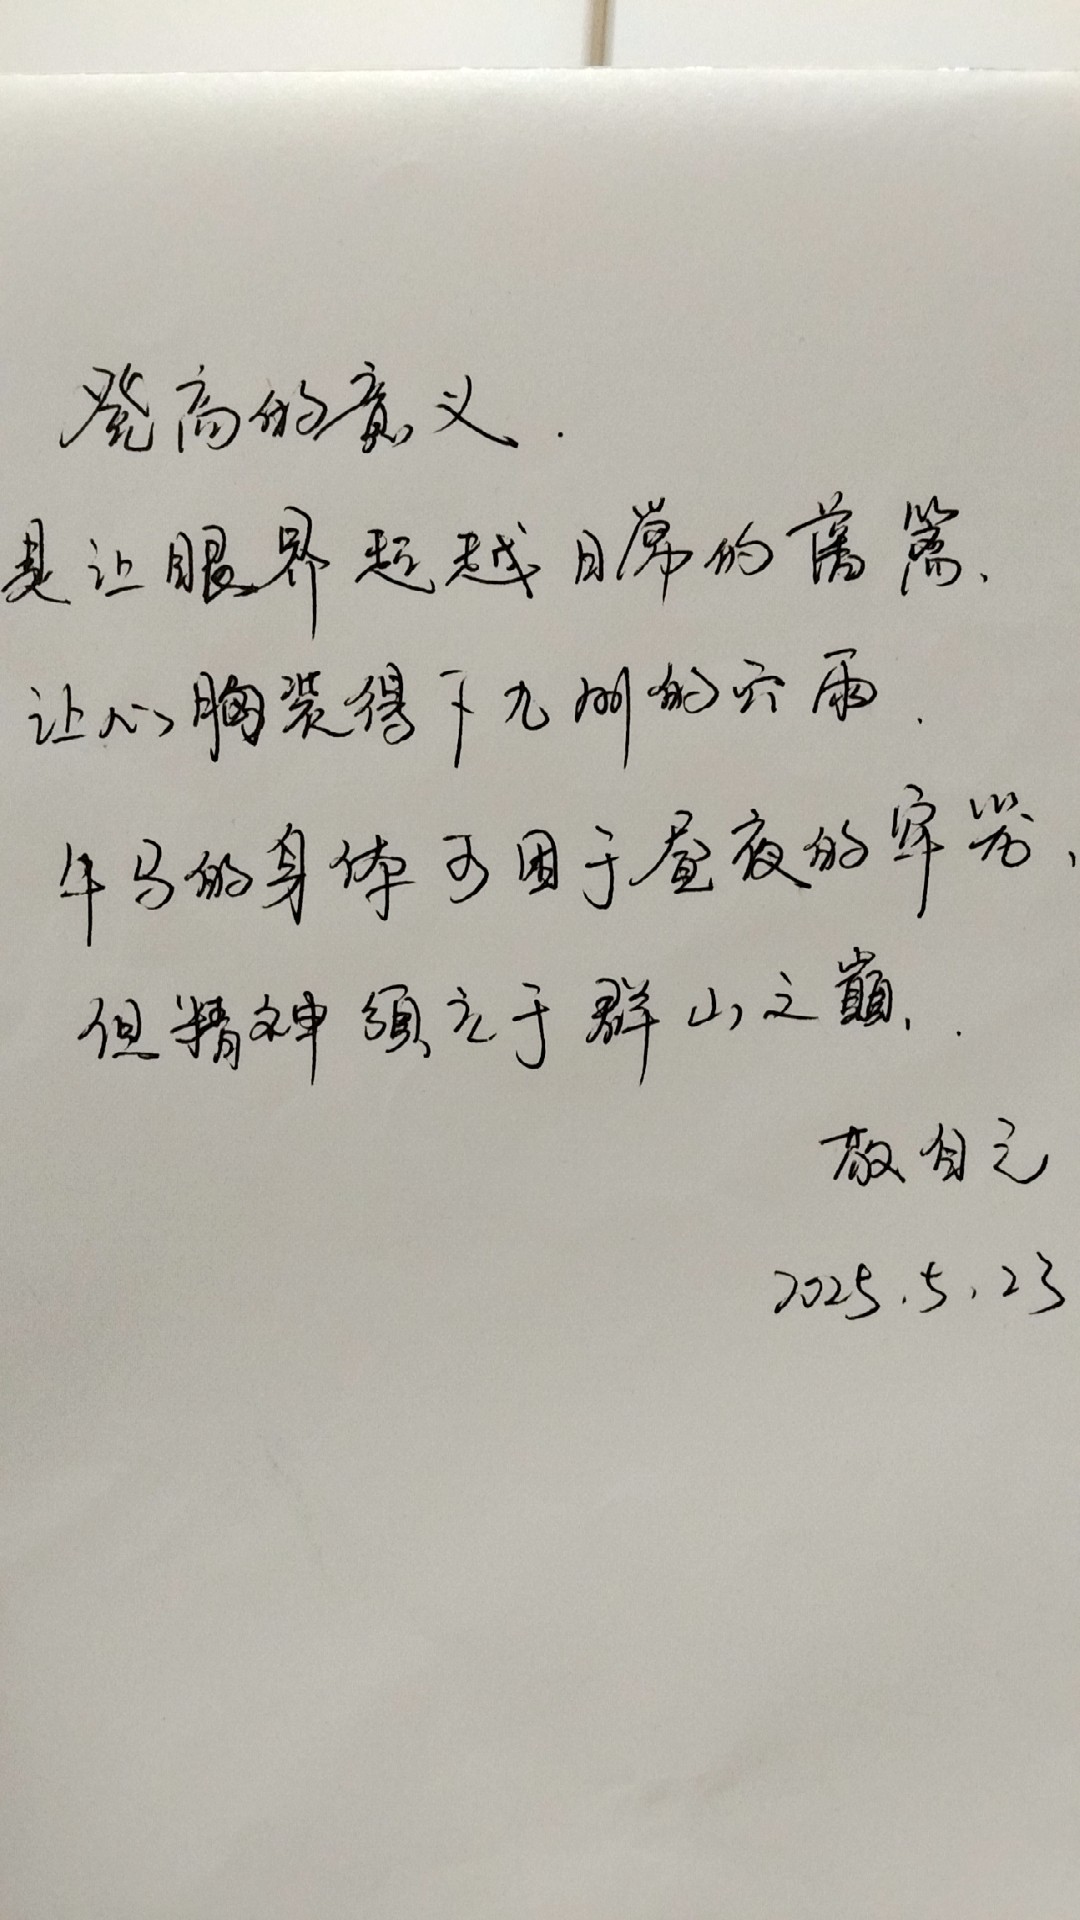 登高的意义.
是让眼界超越日常的藩篱、
让心胸装得下九州的穴雨.
牛马的身体可困于昼夜的牢笼、
但精神须立于群山之巅、.
敬自己
2025.5.23